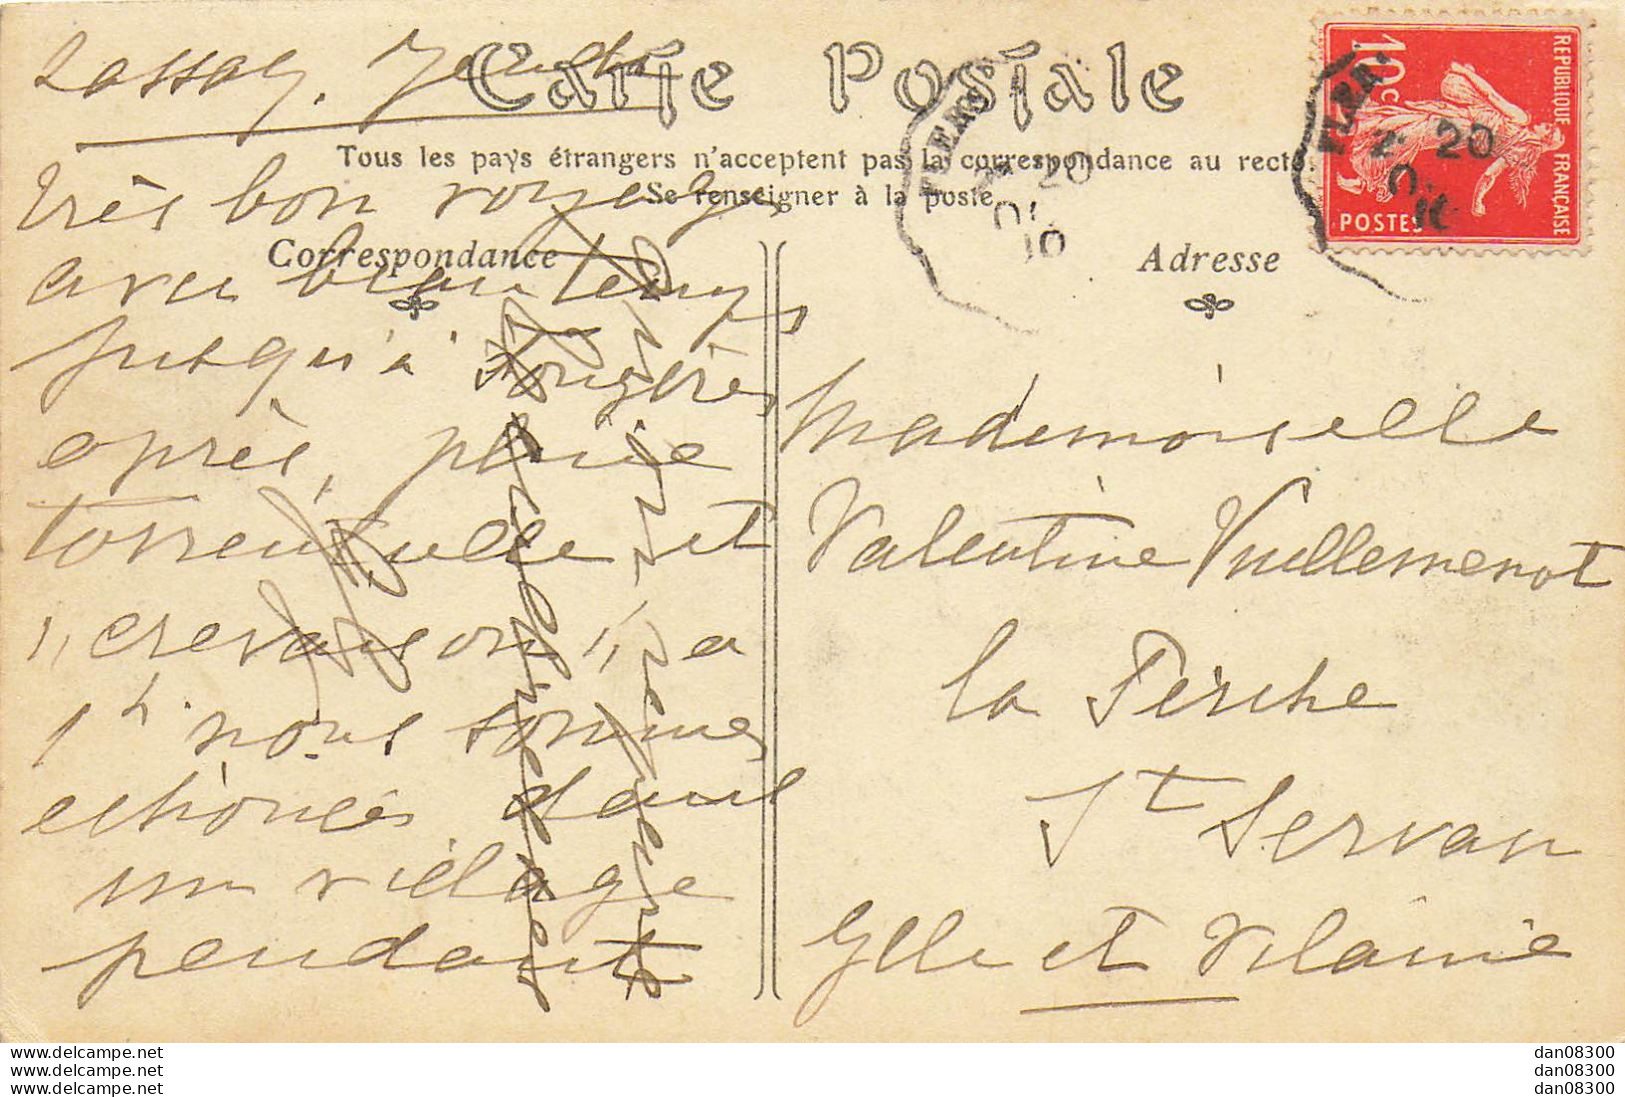 Lassay, Jeudi
Carte Postale
Tous les pays étrangers n'acceptent pas la correspondance au recto.
Se renseigner à la poste
Correspondance
Adresse
très bon voyage
avec beau temps
jusqu'à Fougères
après, pluie
torrentielle et
"crevaison", a
1h. nous sommes
échoués dans
un village
pendant
Mademoiselle
Valentine Vuillemenot
la Perche
St Servan
Ylle et Vilaine
REPUBLIQUE FRANÇAISE
10c
POSTES
20
20
10
www.delcampe.net
www.delcampe.net
www.delcampe.net
dan08300
dan08300
dan08300